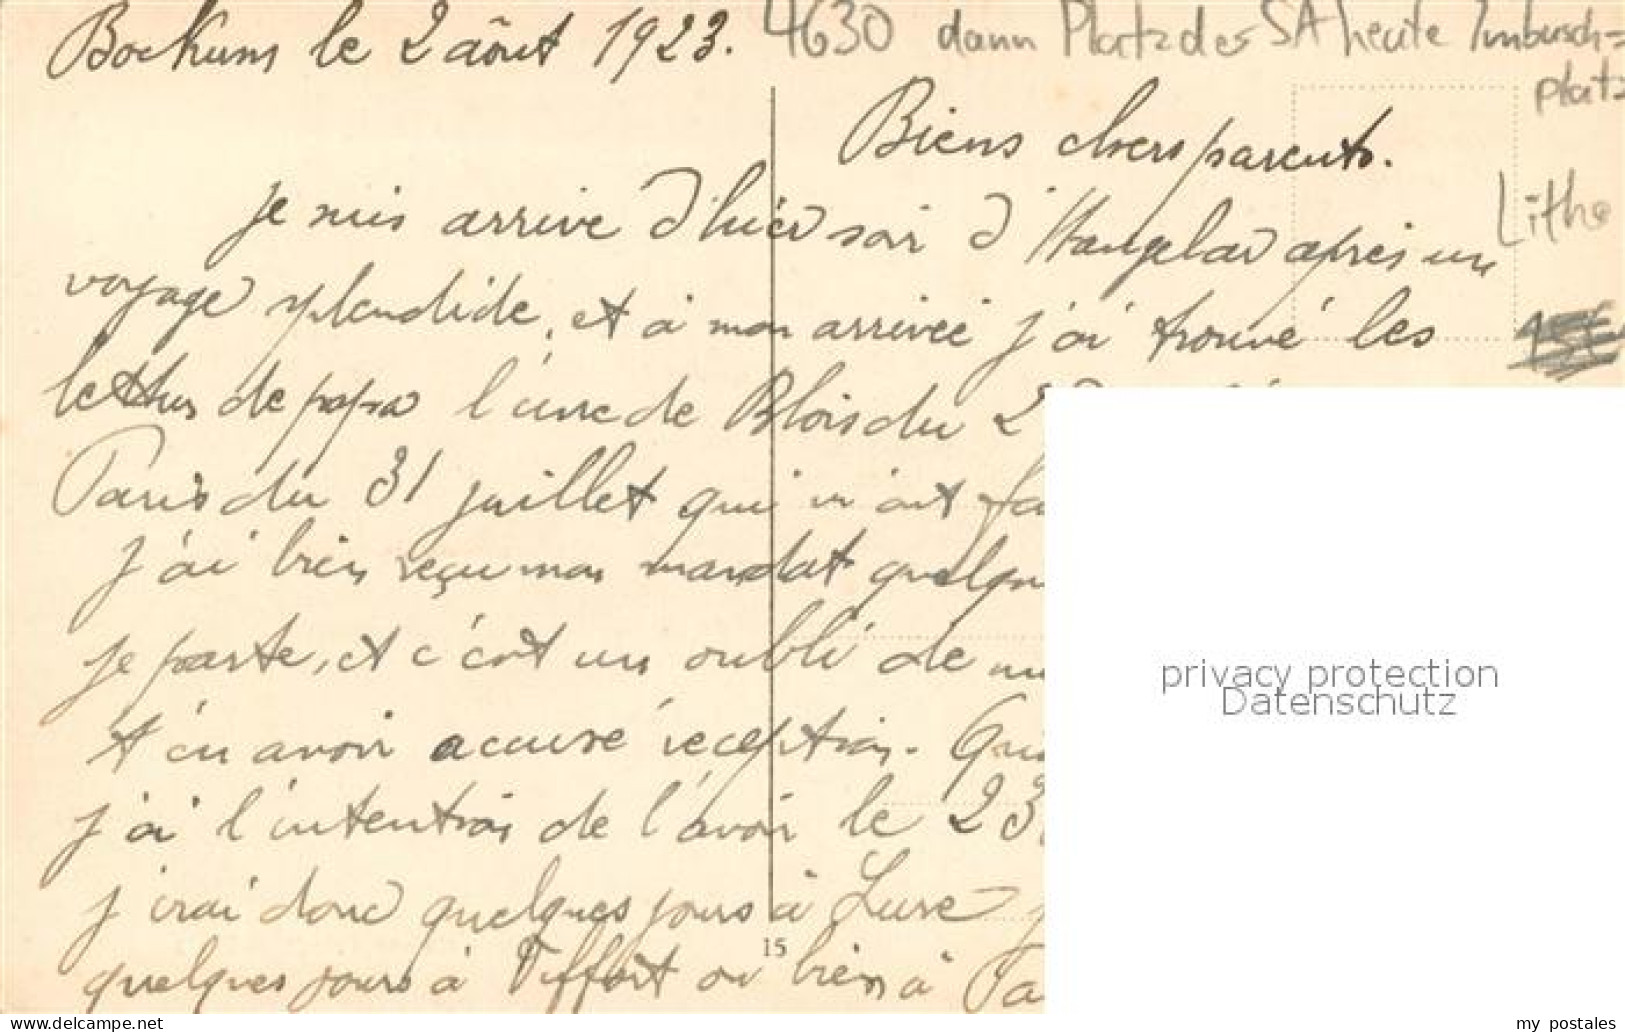 Bochum le 2 août 1923. 4630 dann Platz der SA heute Imbusch=
platz
Biens chers parents.
Litho
Je suis arrive d'hier soir d'Hangelar après un
voyage splendide, et à mon arrivée j'ai trouvé les
lettres de papa l'une de Blois du 2
Paris du 31 juillet qui m'ont fa
j'ai bien reçu mon mandat quelqu
je parte, et c'est un oubli de
t'en avoir accusé reception. Qu
j'ai l'intention de l'avoir le 23
j'irai donc quelques jours à Lure
quelques jours à Tiffort ou bien à Pa
15
privacy protection
Datenschutz
my_postales
https://www.delcampe.net